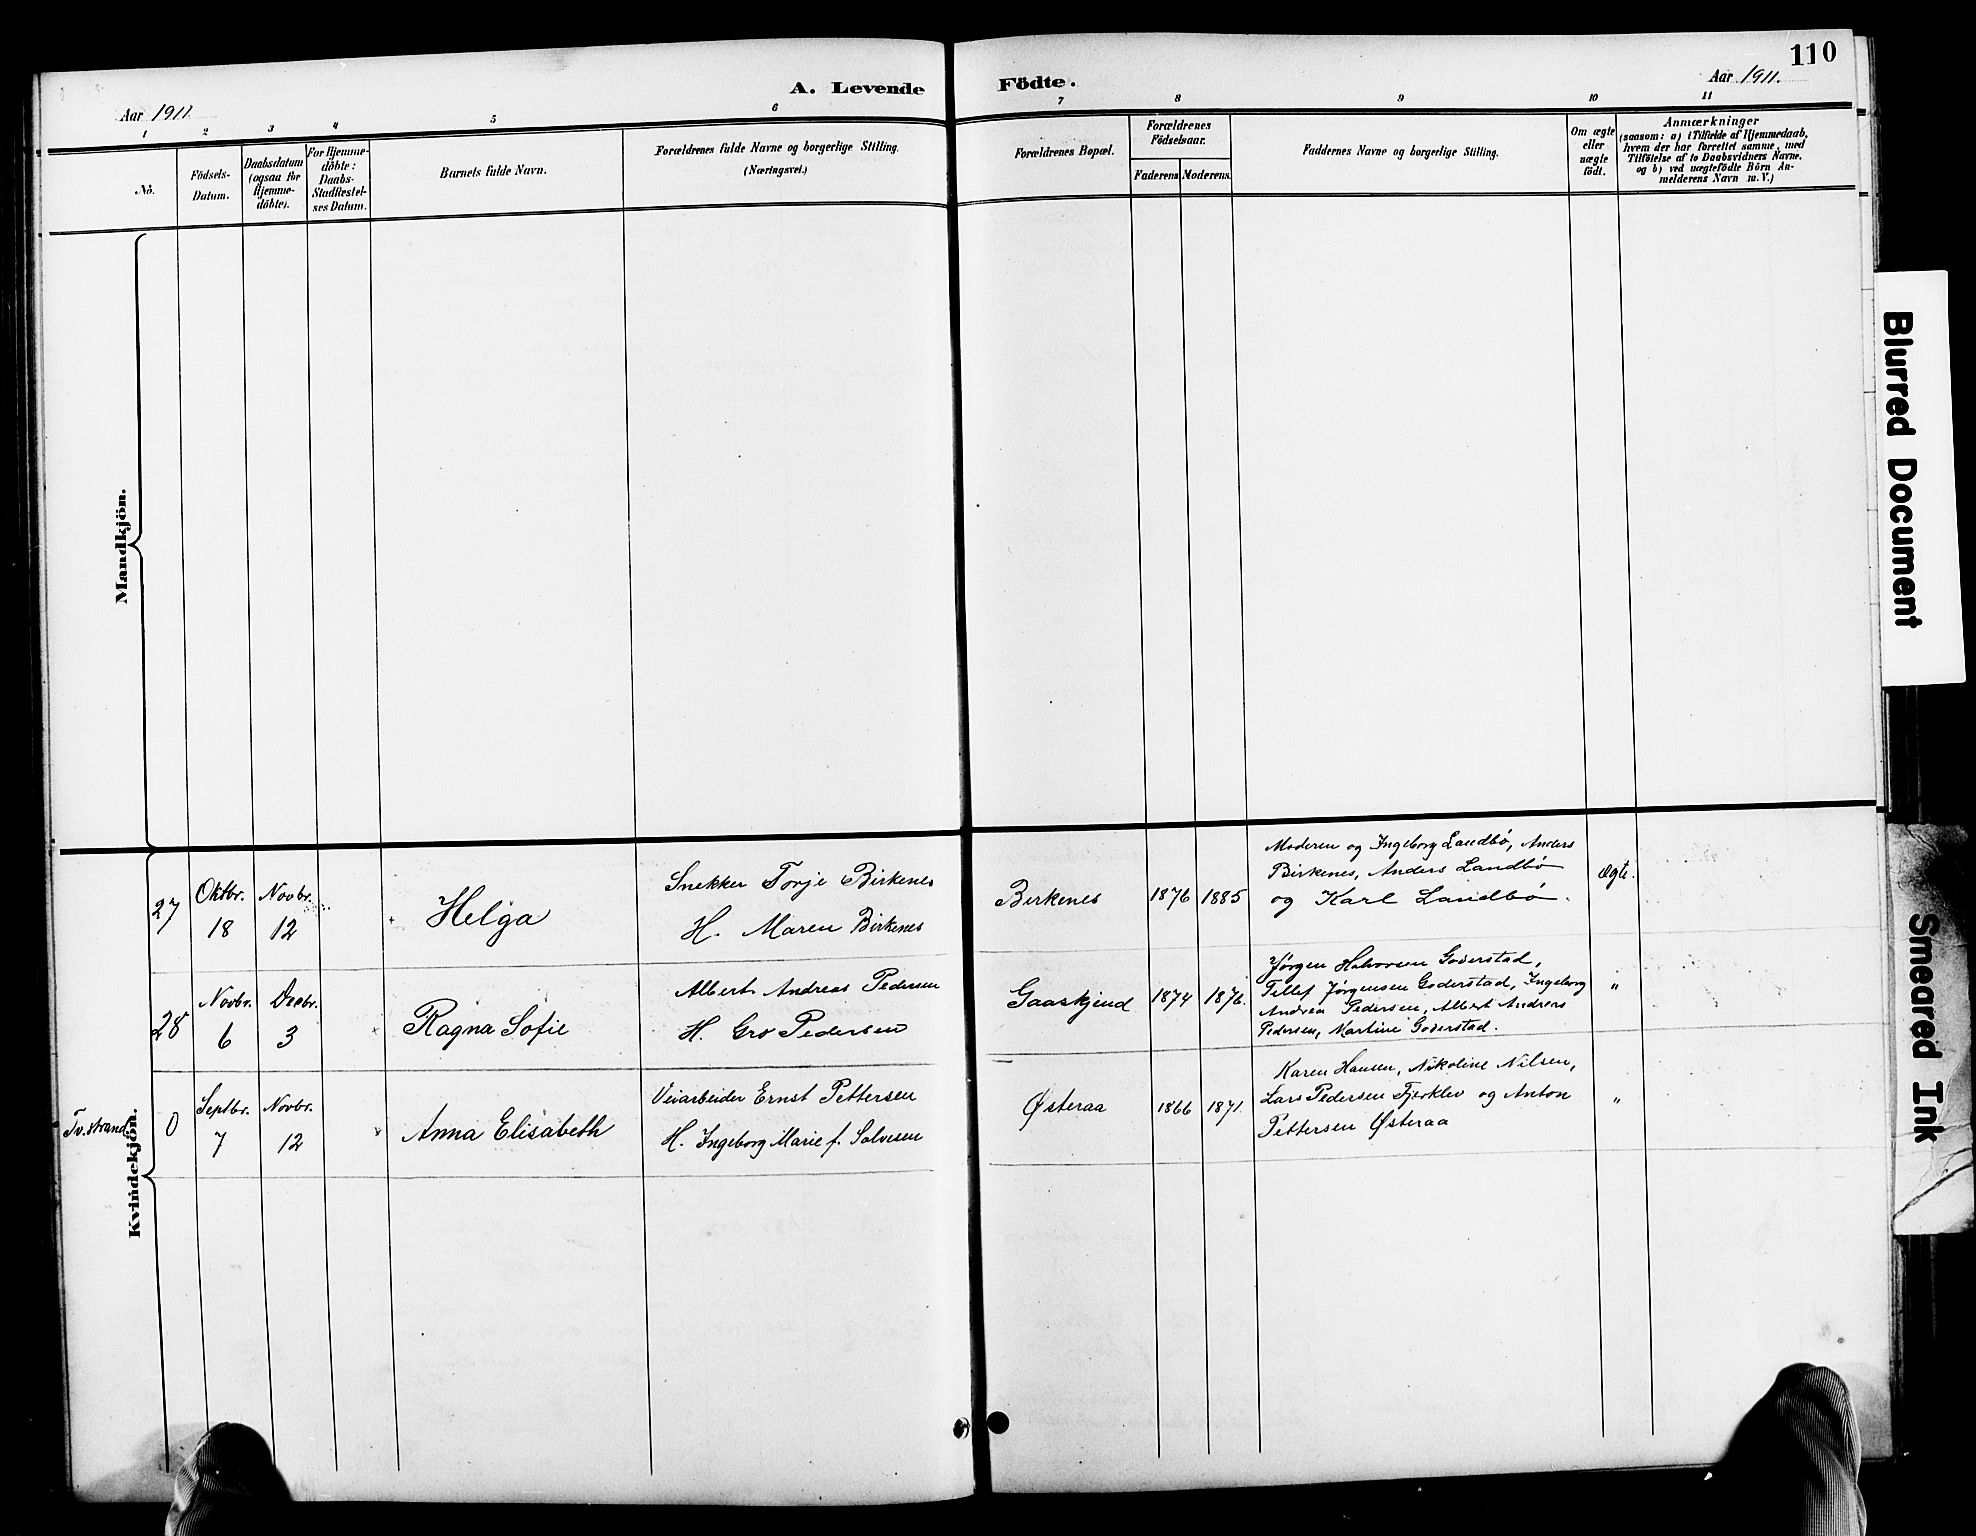 110
A. Levende Födte.
Aar 1911
Aar 1911.
1 2 3 4 5 6 7 8 9 10 11
No.
Födsels-
Datum.
Daabsdatum
(ogsaa for
Hjemme-
döbte).
For Hjemme-
döbte:
Daabs-
Stadfæstel-
ses Datum.
Barnets fulde Navn.
Forældrenes fulde Navne og borgerlige Stilling.
(Næringsvei.)
Forældrenes Bopæl.
Forældrenes
Födselsaar.
Faderens
Moderens.
Faddernes Navne og borgerlige Stilling.
Om ægte
eller
uægte
födt.
Anmærkninger
(saasom: a) i Tilfælde af Hjemmedaab,
hvem der har forrettet samme, med
Tilföielse af to Daabsvidners Navne.
og b) ved uægtefödte Börn An-
melderens Navn m. V.)
Mandkjön.
Kvindekjön.
27
Oktbr.
18
Novbr.
12
Helga
Snekker Torje Birkenes
H. Maren Birkenes
Birkenes
1876
1885
Moderen og Ingeborg Landbø, Anders
Birkenes, Anders Landbø
og Karl Landbø.
Ægte.
28
Novbr.
6
Decbr.
3
Ragna Sofie
Albert Andreas Pedersen
H. Gro Pedersen
Gaaskjend
1874
1876.
Jørgen Halvorsen Goderstad,
Tellef Jørgensen Goderstad, Ingeborg
Andrea Pedersen, Albert Andreas
Pedersen, Martine Goderstad.
"
Tv.strand
0
Septbr.
7
Novbr.
12
Anna Elisabeth
Veiarbeider Ernst Pettersen
H. Ingeborg Marie f. Solvesen
Østeraa
1866
1871.
Karen Hansen, Nikoline Nilsen,
Lars Pedersen Fjerklev og Anton
Pettersen Østeraa
"
Blurred Document
Smeared Ink